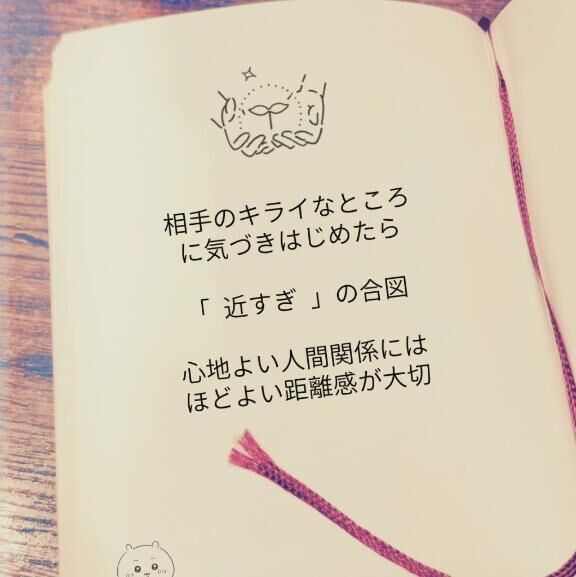 相手のキライなところ
に気づきはじめたら
「 近すぎ 」の合図
心地よい人間関係には
ほどよい距離感が大切